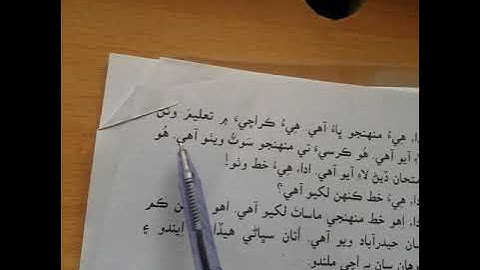 ادا، هيءُ منهنجو ڀاءُ آهي. هيءُ ڪراچيءَ ۾ تعليم وٺڻ
لاءِ آيو آهي. هُو ڪرسيءَ تي منهنجو سَوٽُ ويٺو آهي. هُو
امتحان ڏيڻ لاءِ آيو آهي. ادا، هِيءُ خط وٺو!
ادا، هِيءُ خط ڪنهن لکيو آهي؟
اهو خط منهنجي ماساٽ لکيو آهي. اهو ڪم
سان حيدرآباد ويو آهي. اُتان سڀاڻي ايندو ۽
توهان سان به اچي ملندو.